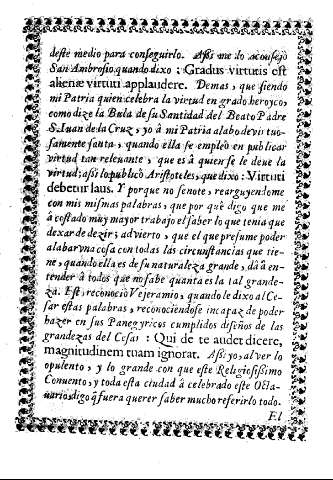 deste medio para conseguirlo. Assi me lo aconsejò
San Ambrosio quando dixo: Gradus virtutis est
alienæ virtuti applaudere. Demas, que siendo
mi Patria quien celebra la virtud en grado heroyco,
como dize la Bula de su Santidad del Beato Padre
S. Iuan de la Cruz, yo à mi Patria alabo devirtuo-
samente santa, quando ella se empleò en publicar
virtud tan relevante, que es à quien se le deve la
virtud; assi lo publicò Aristoteles, que dixo: Virtuti
debetur laus. Y porque no se note, rearguyendome
con mis mismas palabras, que por què digo que me
à costado muy mayor trabajo el saber lo que tenia que
dexar de dezir; advierto, que el que presume poder
alabar vna cosa con todas las circunstancias que tie-
ne, quando ella es de su naturaleza grande, dà à en-
tender à todos que no sabe quanta es la tal grande-
za. Esto reconociò Vejeramio, quando le dixo al Ce-
sar estas palabras, reconociendose incapaz de poder
hazer en sus Panegyricos cumplidos diseños de las
grandezas del Cesar: Qui de te audet dicere,
magnitudinem tuam ignorat. Assi yo, al ver lo
opulento, y lo grande con que este Religiosissimo
Convento, y toda esta ciudad à celebrado este Octa-
uario, digo q̃ fuera querer saber mucho referirlo todo.
El